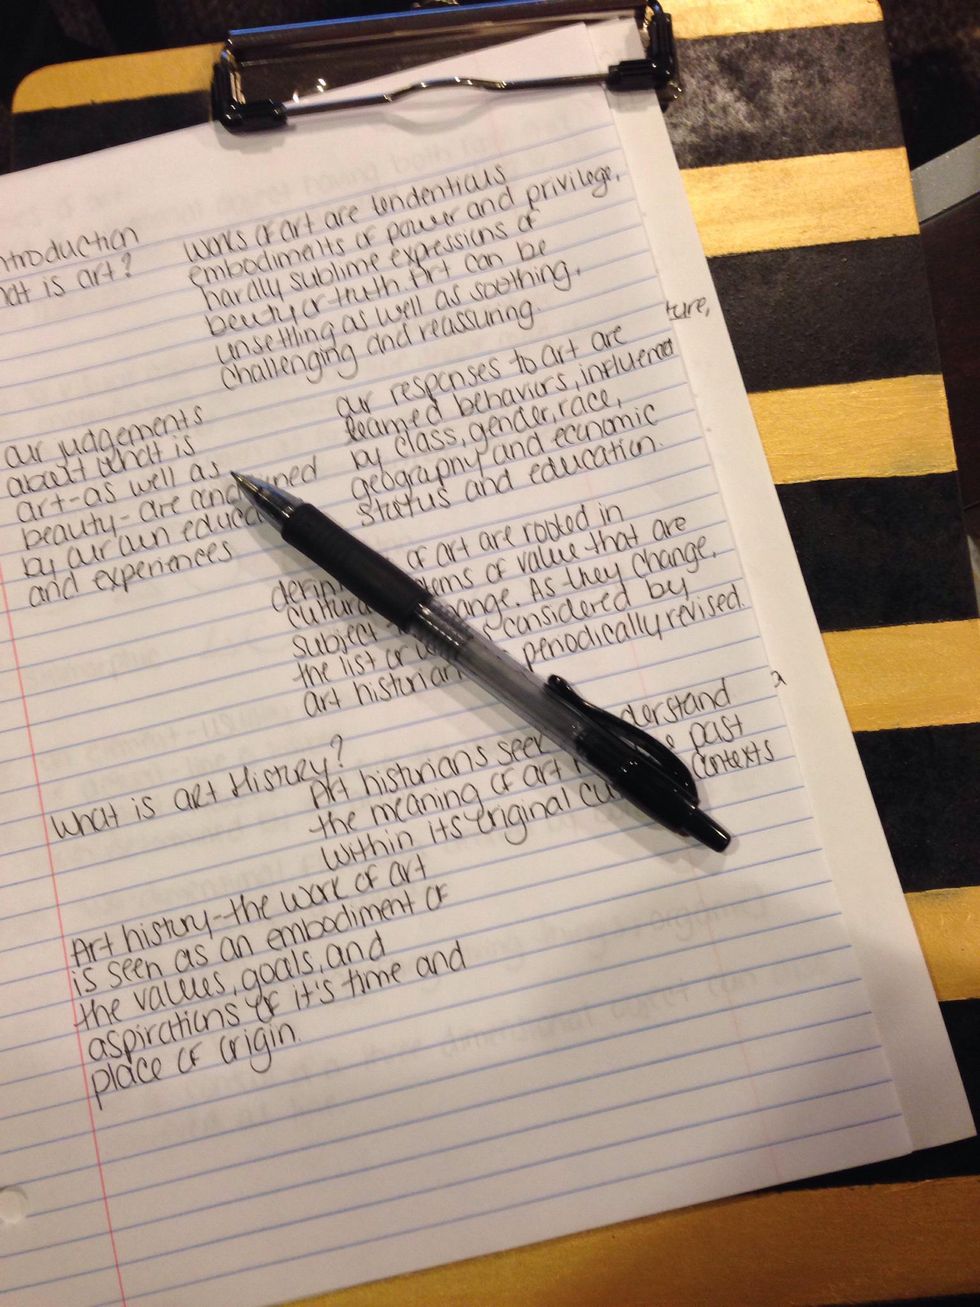 ntroduction
hat is art?
works of art are tendentious
embodiments of power and privilege,
hardly sublime expressions of
beauty or truth. Art can be
unsettling as well as soothing,
challenging and reassuring.
ture,
our judgements
about what is
art-as well as
beauty- are and ned
by our own educa
and experiences
our responses to art are
learned behaviors, influenced
by class, gender, race,
geography and economic
status and education.
defini of art are rooted in
cultura tems of value that are
subject ange. As they change,
the list of considered by
art historian periodically revised.
a
What is art History?
Art historians seek derstand
the meaning of art past
within its original cu contexts
Art history-the work of art
is seen as an embodiment of
the values, goals, and
aspirations of it's time and
place of origin.